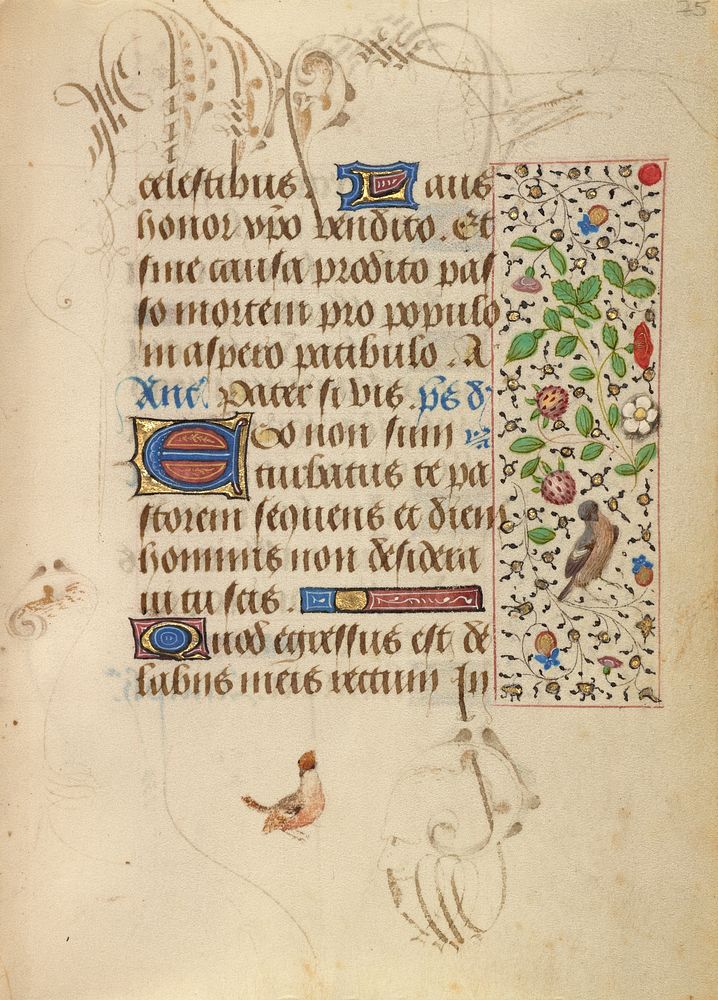 75
celestibus Laus
honor xpo vendito. Et
sine causa prodito pas
so mortem pro populo
in aspero patibulo. A
Ant. Pater si vis. ps d
Ego non sum
turbatus te pa
storem sequens et diem
hominis non desidera
ui tu scis.
Quod egressus est de
labiis meis rectum In